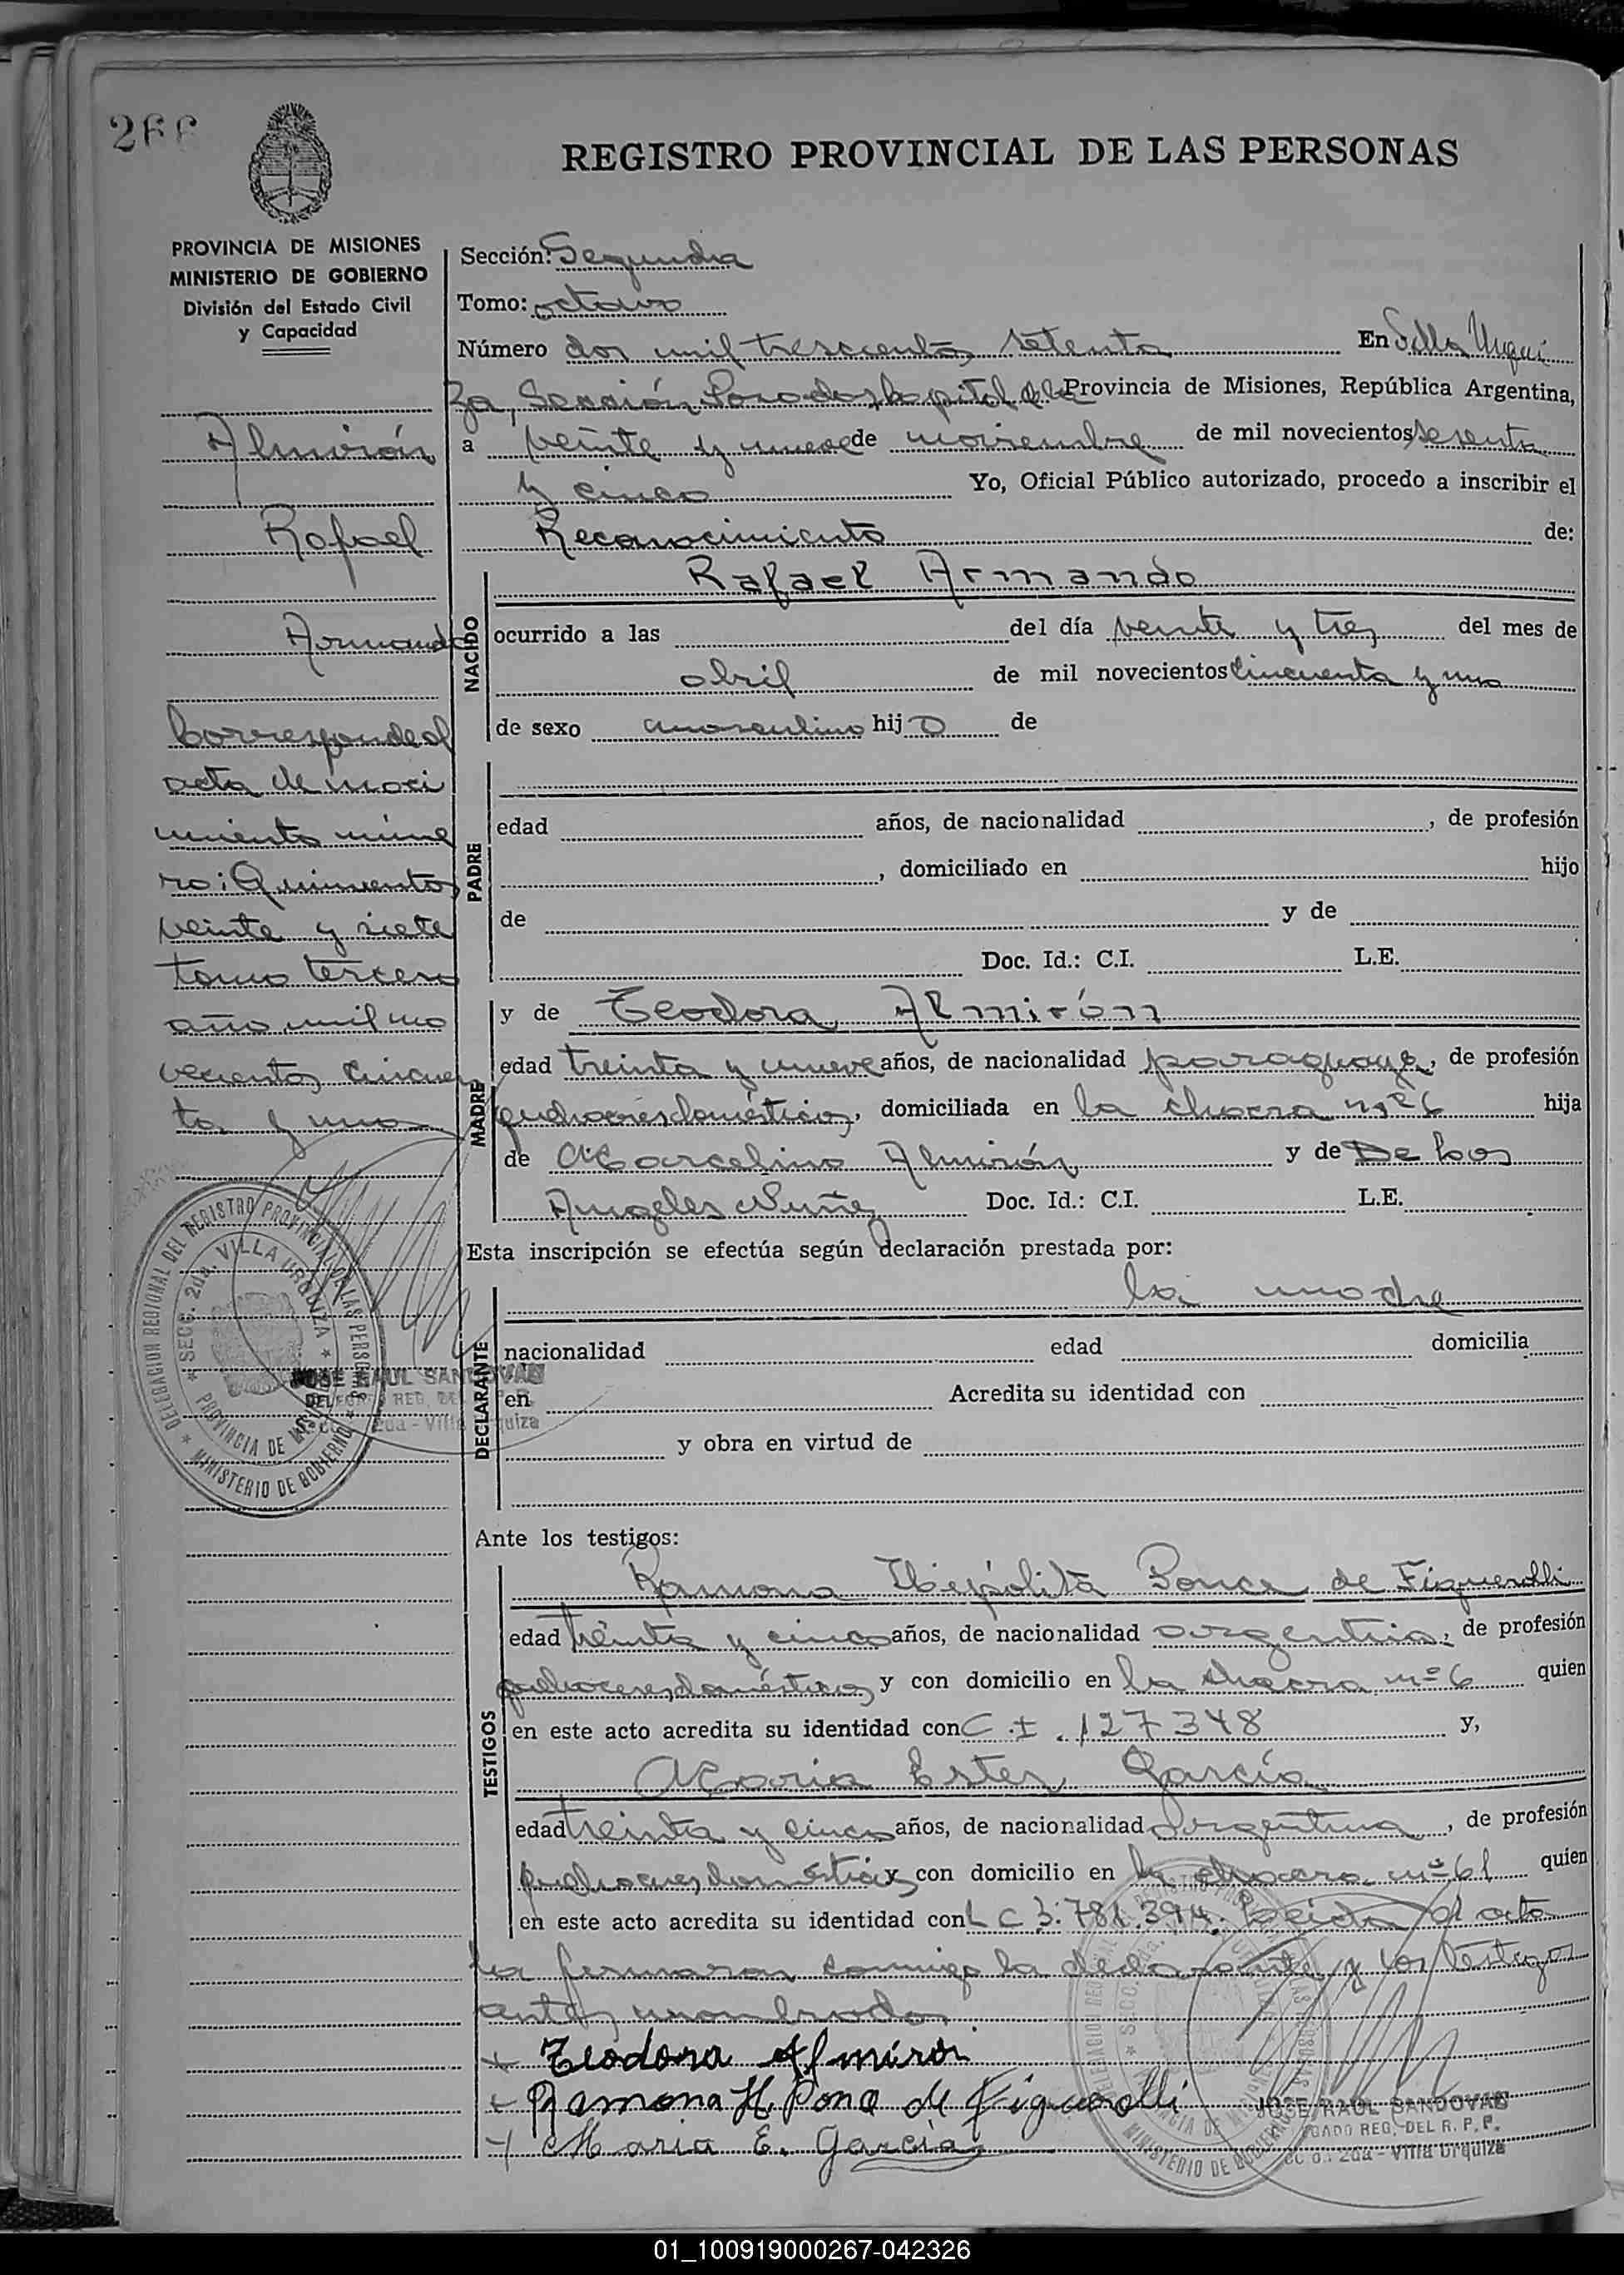 266
REGISTRO PROVINCIAL DE LAS PERSONAS
PROVINCIA DE MISIONES
MINISTERIO DE GOBIERNO
División del Estado Civil
y Capacidad
Almirón
Rafael
Armando
Corresponde al
acta de naci
miento núme
ro: Quinientos
veinte y siete
tomo tercero
año mil no
vecientos cincuen
ta y uno
Sección: Segunda
Tomo: octavo
Número dos mil trescientos setenta En Villa Urqui
za, Sección Posadas, capital de la Provincia de Misiones, República Argentina,
a veinte y nueve de noviembre de mil novecientos sesenta
y cinco Yo, Oficial Público autorizado, procedo a inscribir el
Reconocimiento de:
NACIDO
Rafael Armando
ocurrido a las del día veinte y tres del mes de
abril de mil novecientos cincuenta y uno
de sexo masculino hijo de
PADRE
edad años, de nacionalidad , de profesión
, domiciliado en hijo
de y de
Doc. Id.: C.I. L.E.
MADRE
y de Teodora Almirón
edad treinta y nueve años, de nacionalidad paraguaya, de profesión
quehaceres domésticos, domiciliada en la chacra nº 6 hija
de Marcelino Almirón y de De los
Angeles Nuñez Doc. Id.: C.I. L.E.
Esta inscripción se efectúa según declaración prestada por:
DECLARANTE
la madre
nacionalidad edad domicilia
en Acredita su identidad con
y obra en virtud de
Ante los testigos:
TESTIGOS
Ramona Hipólita Ponce de Figuerelli
edad treinta y cinco años, de nacionalidad argentina, de profesión
quehaceres domésticos y con domicilio en la chacra nº 6 quien
en este acto acredita su identidad con C.I. 127348 y,
Maria Ester García
edad treinta y cinco años, de nacionalidad Argentina, de profesión
quehaceres domésticos y con domicilio en la chacra nº 61 quien
en este acto acredita su identidad con L C 3.781.394. Leida el acta
la firmaron conmigo la declarante y los testigos
antes nombrados
Teodora Almirón
Ramona H. Ponce de Figuerelli
Maria E. García
DELEGACION REGIONAL DEL REGISTRO PROVINCIAL DE LAS PERSONAS
SECC. 2da. VILLA URQUIZA
PROVINCIA DE MISIONES
MINISTERIO DE GOBIERNO
JOSE RAUL SANDOVAL
DELEGADO REG. DEL R. P. P.
2da - Villa Urquiza
JOSE RAUL SANDOVAL
GADO REG. DEL R. P. P.
2da - Villa Urquiza
01_100919000267-042326